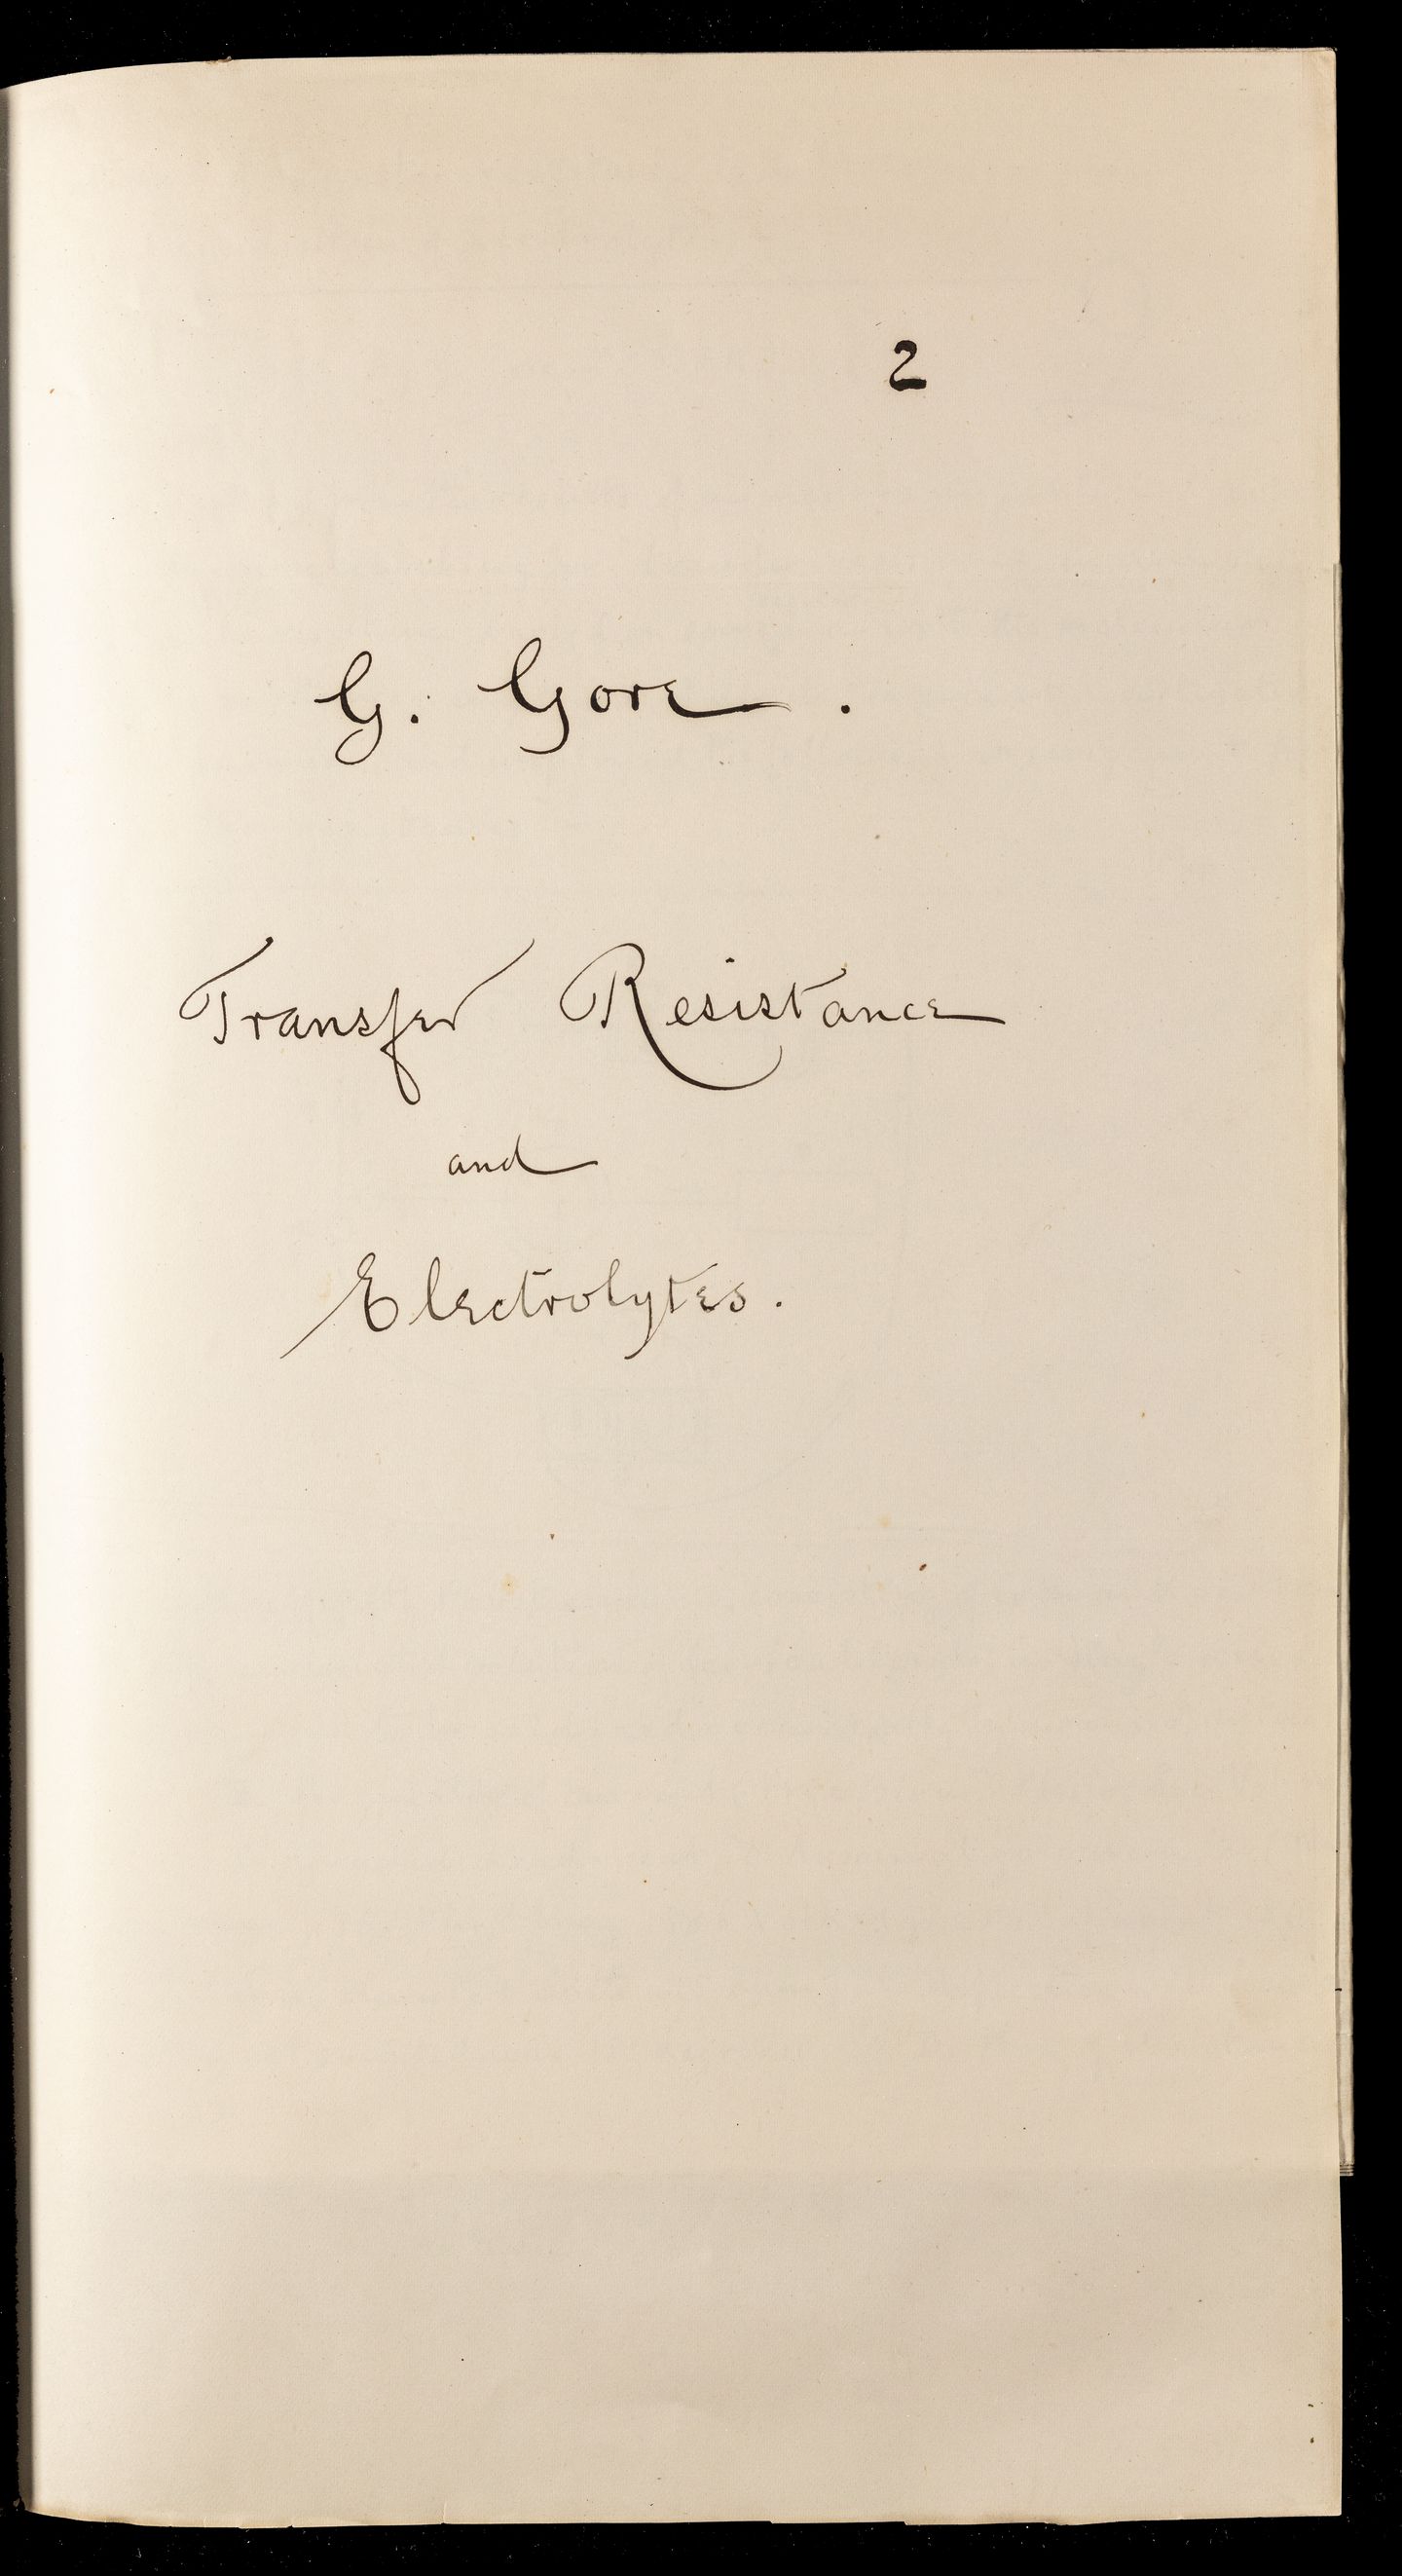 2
G. Gore.
Transfer Resistance
and
Electrolytes.